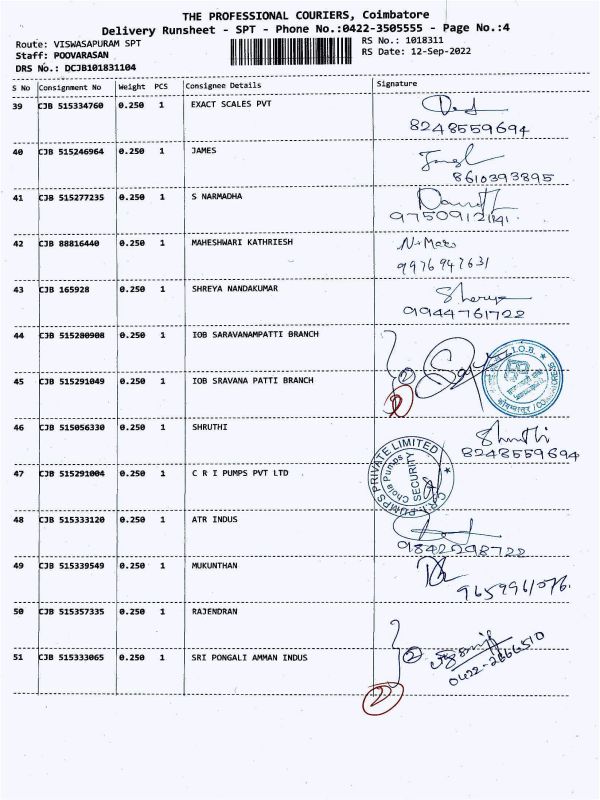 THE PROFESSIONAL COURIERS, Coimbatore
Delivery Runsheet - SPT - Phone No.:0422-3505555 - Page No.:4
Route: VISWASAPURAM SPT
RS No.: 1018311
Staff: POOVARASAN
RS Date: 12-Sep-2022
DRS No.: DCJB101831104
S No Consignment No Weight PCS Consignee Details Signature
39 CJB 515334760 0.250 1 EXACT SCALES PVT
8248559694
40 CJB 515246964 0.250 1 JAMES
8610393895
41 CJB 515277235 0.250 1 S NARMADHA
42 CJB 88816440 0.250 1 MAHESHWARI KATHRIESH
9976947631
43 CJB 165928 0.250 1 SHREYA NANDAKUMAR
Shreya
9944761722
44 CJB 515280908 0.250 1 IOB SARAVANAMPATTI BRANCH
2
I.O.B.
45 CJB 515291049 0.250 1 IOB SRAVANA PATTI BRANCH
46 CJB 515056330 0.250 1 SHRUTHI Shruthi
8248559694
47 CJB 515291004 0.250 1 C R I PUMPS PVT LTD
C.R.I. PUMPS PRIVATE LIMITED
SECURITY
48 CJB 515333120 0.250 1 ATR INDUS
9842298722
49 CJB 515339549 0.250 1 MUKUNTHAN
9659961076.
50 CJB 515357335 0.250 1 RAJENDRAN
2
0422-2666510
51 CJB 515333065 0.250 1 SRI PONGALI AMMAN INDUS
2